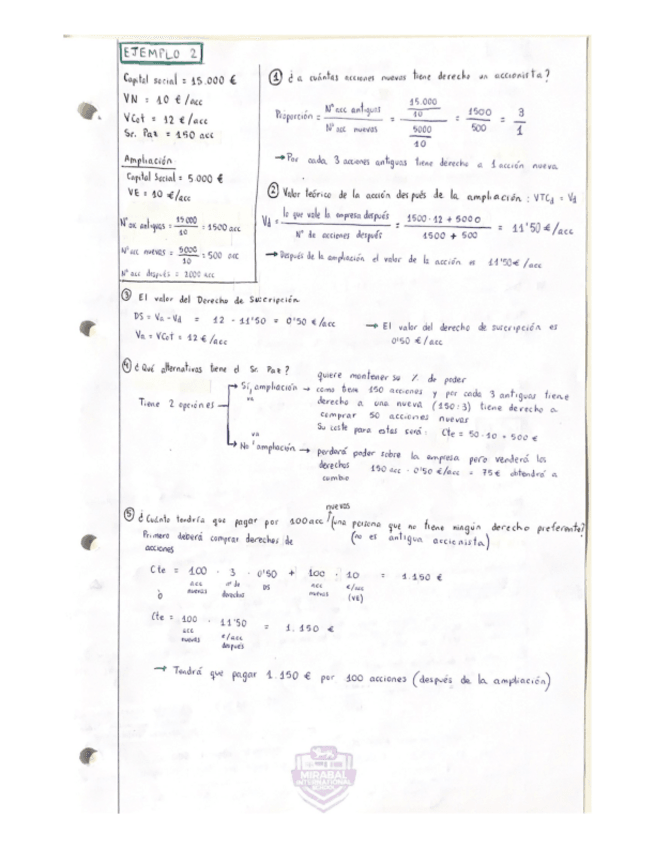 EJEMPLO 2
Capital social = 15.000 €
VN = 10 €/acc
VCot = 12 €/acc
Sr. Paz = 150 acc
Ampliación
Capital Social = 5.000 €
VE = 10 €/acc
Nº ac antiguas = 15000/10 = 1500 acc
Nº acc nuevas = 5000/10 = 500 acc
Nº acc después = 2000 acc
① ¿a cuántas acciones nuevas tiene derecho un accionista?
Proporción = Nº acc antiguas / Nº acc nuevas = 15.000/10 / 5000/10 = 1500/500 = 3/1
→ Por cada 3 acciones antiguas tiene derecho a 1 acción nueva
② Valor teórico de la acción después de la ampliación : VTCd = Vd
Vd = lo que vale la empresa después / Nº de acciones después = 1500 · 12 + 5000 / 1500 + 500 = 11'50 €/acc
→ Después de la ampliación el valor de la acción es 11'50€ /acc
③ El valor del Derecho de Suscripción
DS = Va - Vd = 12 - 11'50 = 0'50 €/acc
Va = VCot = 12 €/acc
→ El valor del derecho de suscripción es
0'50 €/acc
④ ¿Qué alternativas tiene el Sr. Paz?
Tiene 2 opciones
Sí, ampliación →
va
quiere mantener su % de poder
como tiene 150 acciones y por cada 3 antiguas tiene
derecho a una nueva (150:3) tiene derecho a
comprar 50 acciones nuevas
Su coste para estas será: Cte = 50 · 10 = 500 €
va
No ampliación →
perderá poder sobre la empresa pero venderá los
derechos 150 acc · 0'50 €/acc = 75€ obtendrá a
cambio
⑤ ¿Cuánto tendría que pagar por 100 acc nuevas (una persona que no tiene ningún derecho preferente?
(no es antigua accionista)
Primero deberá comprar derechos de
acciones
Cte = 100 · 3 · 0'50 + 100 · 10 = 1.150 €
acc nuevas nº de derechos DS acc nuevas €/acc (VE)
ò
Cte = 100 · 11'50 = 1.150 €
acc nuevas €/acc después
→ Tendrá que pagar 1.150 € por 100 acciones (después de la ampliación)
MIRABAL
INTERNATIONAL
SCHOOL